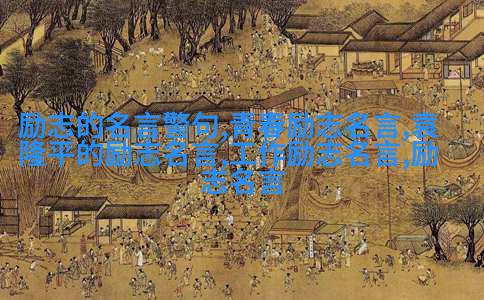 励志的名言警句,青春励志名言,袁
隆平的励志名言,工作励志名言,励
志名言